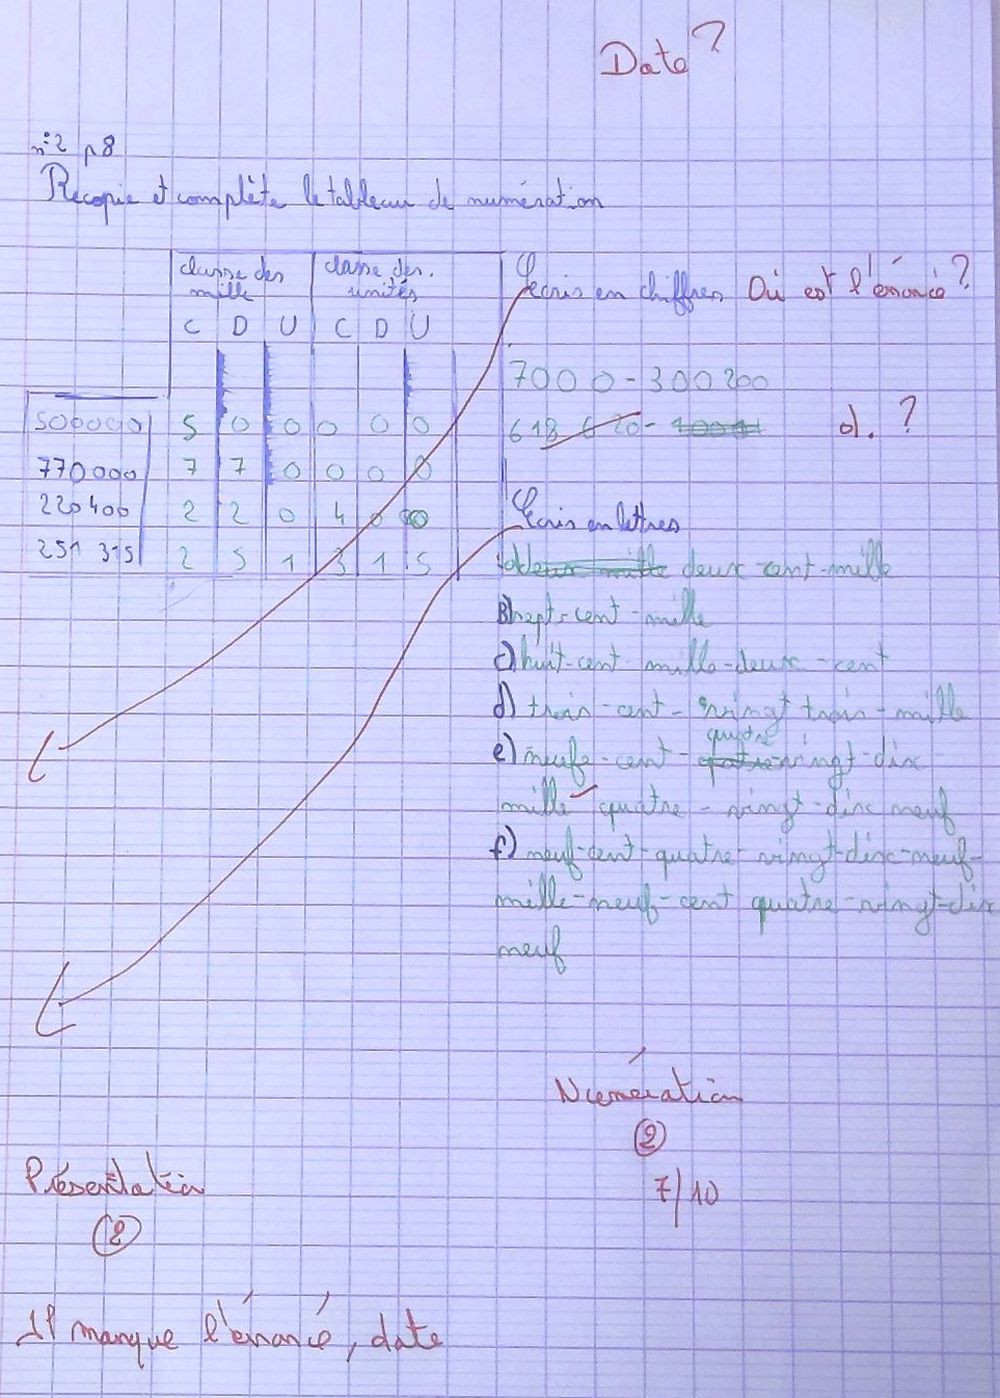 Date ?
n°2 p8
Recopie et complète le tableau de numération
classe des mille classe des unités
C D U C D U
500000 5 0 0 0 0 0
770000 7 7 0 0 0 0
220400 2 2 0 4 0 0
251 315 2 5 1 3 1 5
Ecris en chiffres Où est l'énoncé ?
7000 - 300 200
618 620 - d. ?
Ecris en lettres
deux cent-mille
B) sept-cent-mille
c) huit-cent-mille-deux-cent
d) trois-cent-vingt trois-mille
e) neufe-cent-quatre vingt-dix
mille quatre-vingt-dix neuf
f) neuf-cent-quatre-vingt-dix-neuf-
mille-neuf-cent quatre-vingt-dix
neuf
Numération
2
7/10
Présentation
2
Il manque l'énoncé, date